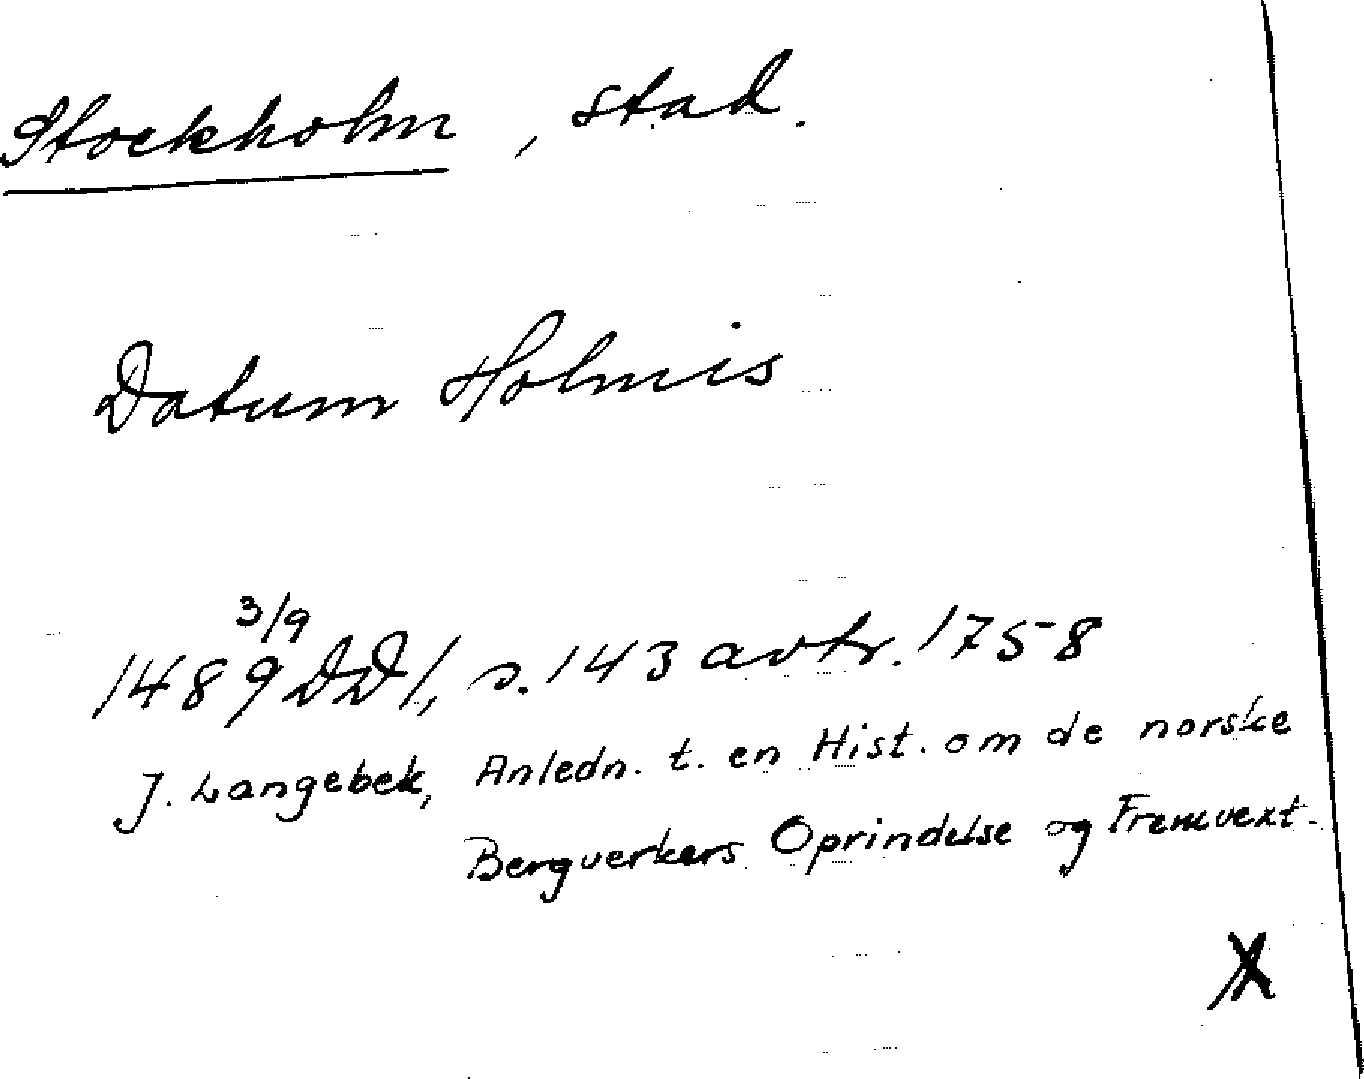 Stockholm, stad.
Datum Holmis
1489 3/9 DD1, s. 143 avtr. 1758
J. Langebek, Anledn. t. en Hist. om de norske
Bergverkers Oprindelse og Fremvext.
X